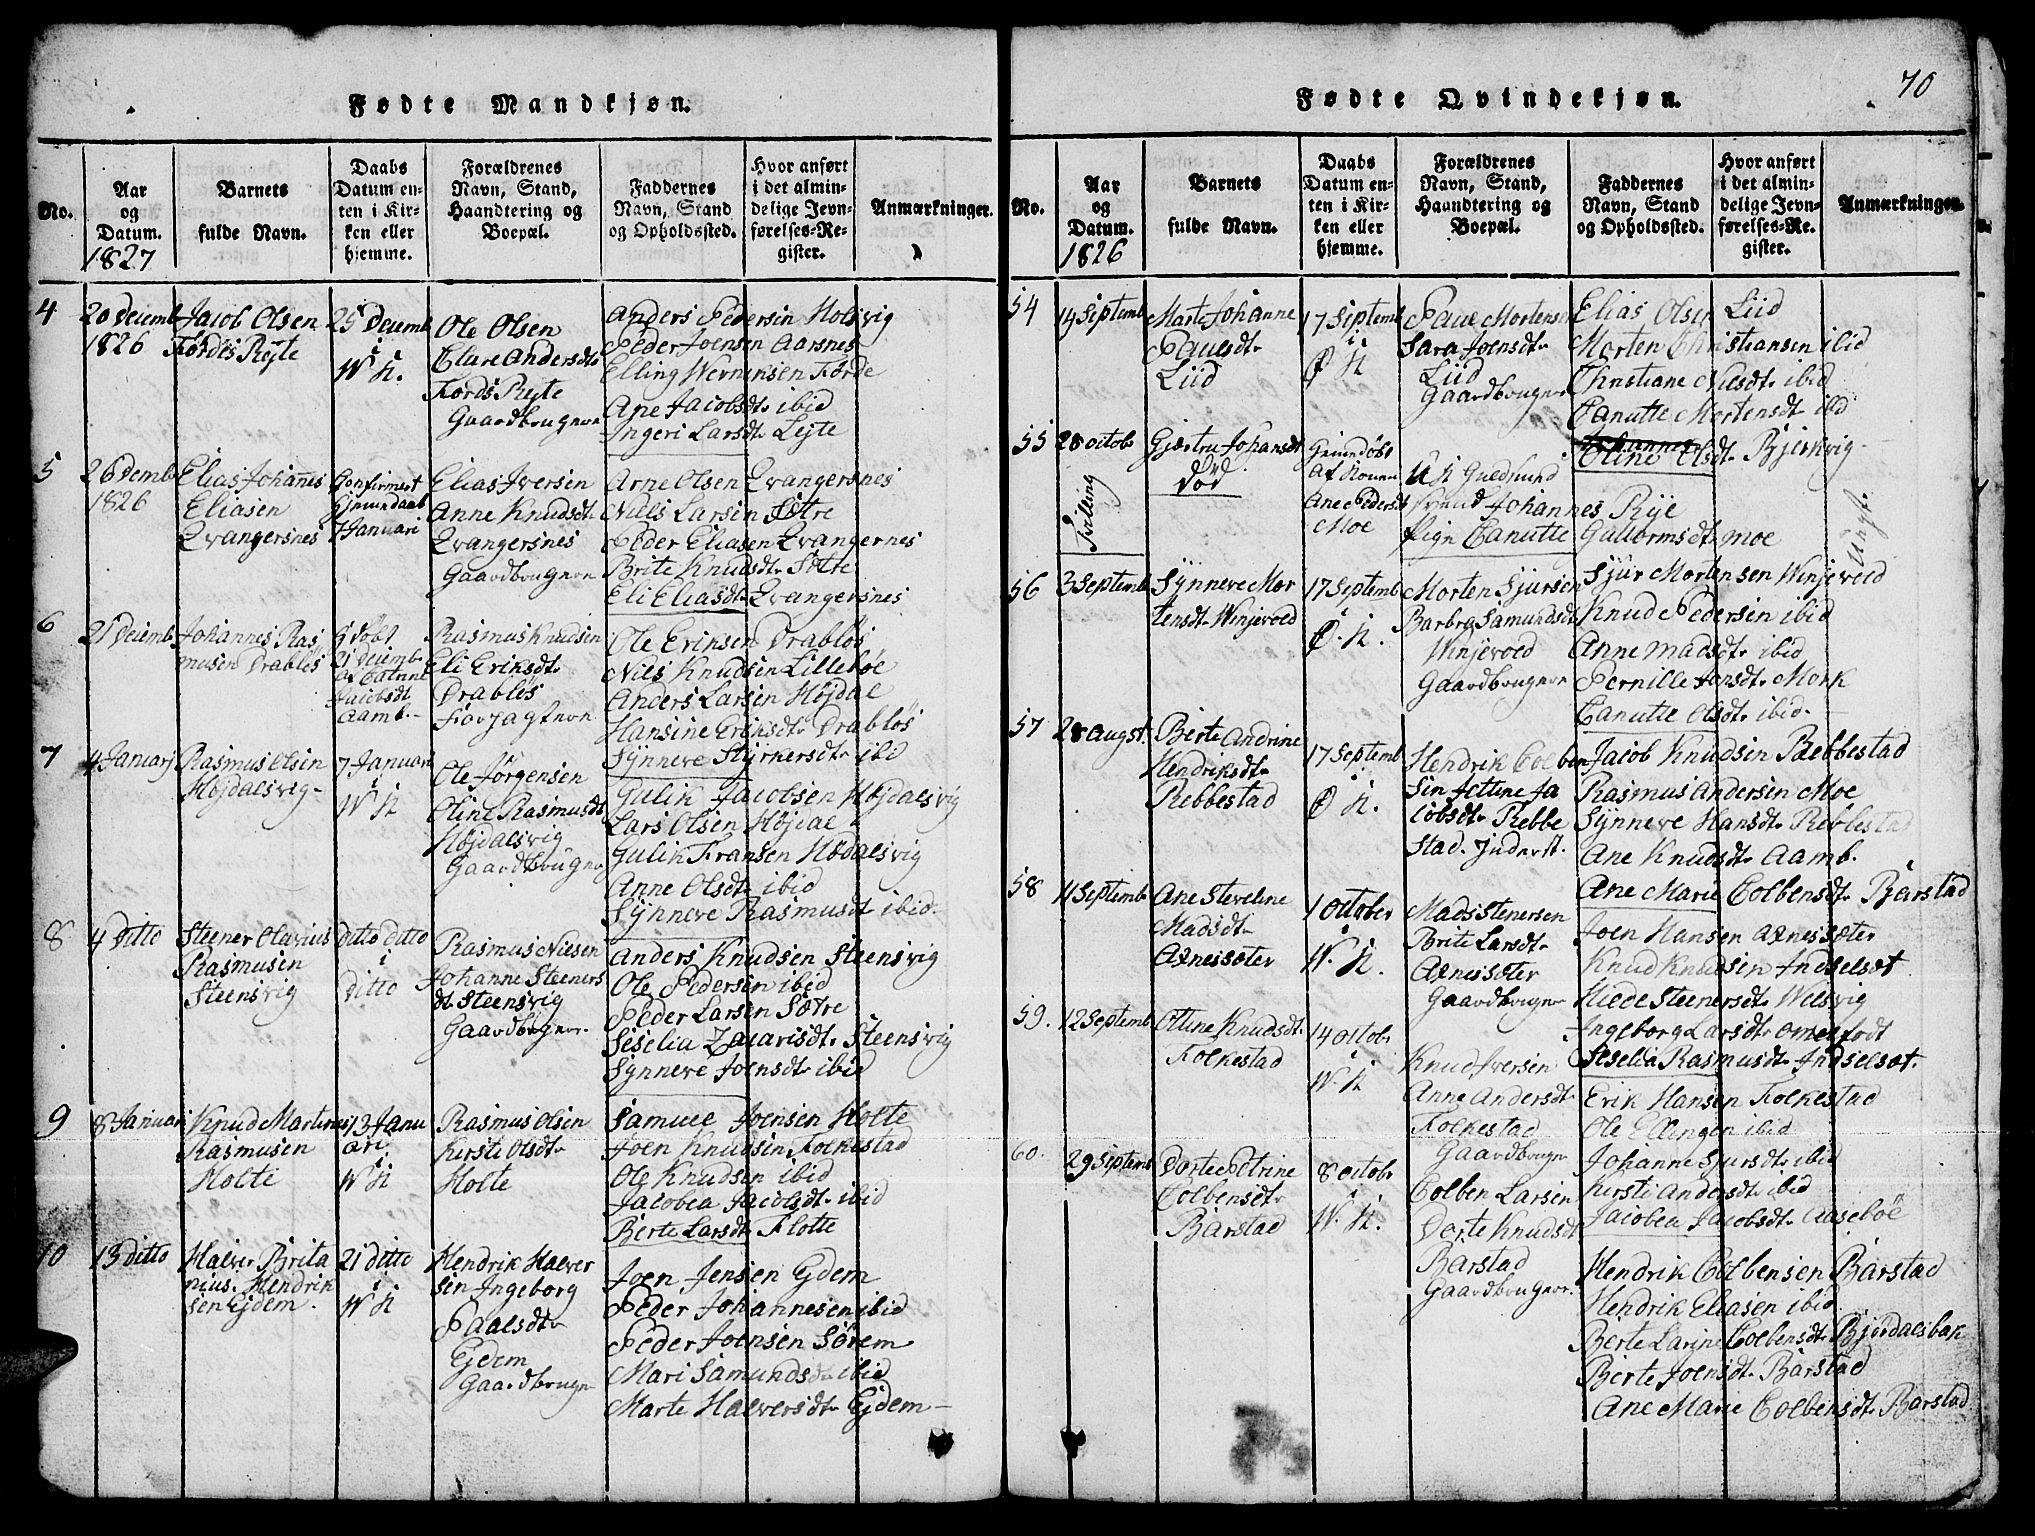 Fødte Mandkjøn.
No.
Aar og Datum.
1827
Barnets fulde Navn.
Daabs Datum enten i Kirken eller hjemme.
Forældrenes Navn, Stand, Haandtering og Boepæl.
Faddernes Navn, Stand og Opholdssted.
Hvor anført i det almindelige Jevnførelses-Register.
Anmærkninger.
4
20 Decemb
1826
Jacob Olsen
Førdes Rejte
25 Decemb
i
W K.
Ole Olsen
Clare Andersdt
Førds Rejte
Gaardbruger
Anders Pedersen Holsvig
Peder Joensen Aarsnes
Elling Wernensen Førde
Ane Jacobsdt. ibid
Ingeri Larsdt. Lejte
5
26 Demb
1826
Elias Johannes
Eliasen
Qvangersnes
Confirmert
Hjemmdaab
7 Januari
Elias Iversen
Anne Knudsdt.
Qvangersnes
Gaardbrugeren
Arne Olsen Qvangersnes
Niels Larsen Sætre
Peder Eliasen Qvangernes
Brite Knudsdt. Sætre
Eli Eliasdt. Qvangersnes
6
21 Decemb.
Johannes Ras
musen Drabløs
Gjdøbt
21 Decemb.
af Catrine
Jacobsdt
Aamb.
Rasmus Knudsen
Eli Eriksdt.
Drabløs
Ole Eriksen Drabløs
Niels Knudsen Lillebøe
Anders Larsen Højdal
Hansine Eriksdt. Drabløs
Synneve Styrkersdt. ibid
7
4 Januarj
Rasmus Olsen
Højdalsvig
7 Januar
i
W K
Ole Jørgensen
Oline Rasmusdt
Højdalsvig
Gaardbruger
Gulik Jacobsen Højdalsvig
Lars Olsen Højdal
Gulik Fransen Højdalsvig
Anne Olsdt. ibid
Synneve Rasmusdt ibid.
8
4 Ditto
Steener Olavius
Rasmusen
Steensvig
Ditto Ditto
i
Ditto
Rasmus Nilsen
Johanne Steeners
dt Steensvig
Gaardbruger.
Anders Knudsen Steensvig
Ole Pedersen ibid
Peder Larsen Sætre
Seselia Zacarisdt. Steensvig
Synneve Joensdt. ibid
9
8 Januari
Knud Martinus
Rasmusen
Holte
13 Janu
ari.
i
W K
Rasmus Olsen
Kirsti Olsdt.
Holte
Samuel Joensen Holte
Joen Knudsen Folkestad
Ole Knudsen ibid
Jacobea Jacobsdt. ibid
Berte Larsdt. Flotte
10
13 Ditto
Halver Brita
nius. Hendrik
sen Ejdem.
21 Ditto
i
W K
Hendrik Halver
sen Ingeborg
Paalsdt.
Ejdem
Gaardbruger
Joen Jensen Ejdem
Peder Johannesen ibid
Peder Joensen Sørem
Mari Samundsd. ibid
Marte Halversdt. Ejdem
70
Fødte Qvindekjøn.
No.
Aar og Datum.
1826
Barnets fulde Navn.
Daabs Datum enten i Kirken eller hjemme.
Forældrenes Navn, Stand, Haandtering og Boepæl.
Faddernes Navn, Stand og Opholdssted.
Hvor anført i det almindelige Jevnførelses-Register.
Anmærkninger.
54
14 Septemb
Marte Johanne
Paulsdt.
Liid
17 Septemb
i
Ø K
Paul Mortensen
Sara Joensdt.
Liid
Gaardbruger
Elias Olsen Liid
Morten Christiansen ibid
Christiane Nilsdt. ibid
Canutte Mortensdt ibid
Oline Olsdt. Bjerkvig
55
28 octob
Tvilling
Gjærtru Johansdt
Død
af Konen
Ane Pedersdt
Moe
Johannes Rye
Pign Canutte Guttormsdt Moe
Uægt.
56
3 Septemb
Synneve Mor
tensdt. Winjevold
17 Septemb
i
Ø. K.
Morten Sjursen
Barbro Samundsdt
Winjevold
Gaardbruger
Sjur Mortensen Winjevold
Knud Pedersen ibid
Anne Madsdt. ibid
Pernille Jensdt. Mork
Canutte Olsdt. ibid.
57
28 augst.
Berte Andrine
Hendriksdt.
Rebbestad
17 Septemb
i
Ø K.
Hendrik Colben
sen Jettine Ja
cobsdt. Rebbe
stad. Inderst.
Jacob Knudsen Rebbestad
Rasmus Andersen Moe
Synneve Hansdt. Rebbestad
Ane Knudsdt. Aamb.
Ane Marie Colbensdt. Bjarstad
58
11 Septemb
Ane Steveline
Madsdt.
Aznessæter
1 October
i
W. K.
Mads Stenersen
Brite Larsdt.
Aznessæter
Gaardbruger
Joen Hansen Aznessæter
Knud Knudsen Indselsæt
Hilde Steenersdt. Welsvig
Ingeborg Larsdt. Omelfodt
Seselia Rasmusdt. Indselsæt.
59.
12 Septemb
Ottine Knudsdt.
Folkestad
14 octob
i
W. K
Knud Iversen
Anne Andersdt.
Folkestad
Gaardbruger
Erik Hansen Folkestad
Ole Ellingen ibid
Johanne Sjursdt. ibid
Kirsti Andersdt. ibid
Jacobea Jacobsdt. Aasebøe
60.
29 Septemb
Dorte Petrine
Colbensdt.
Barstad
8 octob
i
W. K.
Colben Larsen
Dorte Knudsdt
Barstad
Gaardbruger.
Hendrik Colbensen Barstad
Hendrik Eliasen ibid
Berte Larine Colbensdt. Bjørdalsbak
Berte Joensdt. Barstad
Ane Marie Colbensdt. Barstad